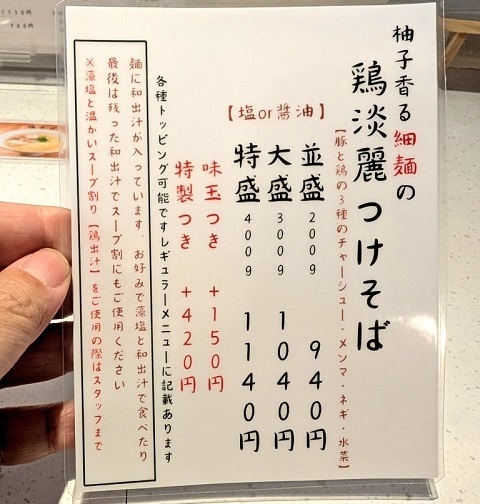 柚子香る細麺の
鶏淡麗つけそば
【豚と鶏の3種のチャーシュー・メンマ・ネギ・水菜】
【塩or醤油】
並盛 200g 940円
大盛 300g 1040円
特盛 400g 1140円
味玉つき +150円
特製つき +420円
各種トッピング可能ですレギュラーメニューに記載あります
麺に和出汁が入っています。お好みで藻塩と和出汁で食べたり
最後は残った和出汁でスープ割にもご使用ください
※藻塩と温かいスープ割り【鶏出汁】をご使用の際はスタッフまで